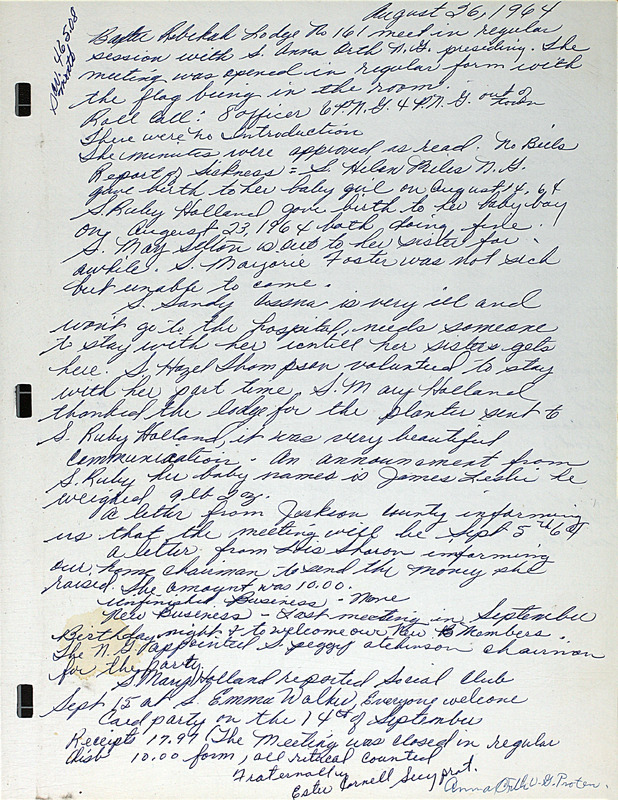 August 26, 1964
Rebekah Lodge No 161 meet in regular
session with S. Anna Orth N.G. presiding. The
meeting was opened in regular form with
the flag being in the room.
Roll call: 8 officer 6 P.N.G. 4 P.N.G. out of town
There were no Introduction
The minutes were approved as read. No Bills
Report of Sickness = S. Helen Miles N.G.
gave birth to her baby girl on August 14, 64
S. Ruby Holland gave birth to her baby boy
on August 23, 1964 both doing fine.
S. May is out to her sister for
awhile. S. Marjorie Foster was not sick
but unable to come.
S. Sandy is very ill and
won't go to the hospital, needs someone
to stay with her until her sisters gets
here. S. Hazel Thompson volunteed to stay
with her part time. S. Mary Holland
thanked the lodge for the planter sent to
S. Ruby Holland, it was very beautiful
Communication - An announcment from
S. Ruby her baby names is James Leslie he
weighed 9lb 2oz.
A letter from Jackson County informing
us that the meeting will be Sept 5th
a letter from Lois Sharon informing
our home chairman to send the money she
raised. The amount was 10.00.
Unfinished Business - None
New Business - Last meeting in September
Birthday night & to welcome our New Members.
The N.G. appointed S. Peggy Atchinson chairman
for the party.
S. Mary Holland reported Social Club
Sept 15 at S. Emma Walker, Everyone welcome
Card party on the 14th of September
Receipts 17.97 The Meeting was closed in regular
Disb 10.00 form, all retired counted
Fraternally
Ester Cornell Secy prot.
Anna Orth N.G. Protem.